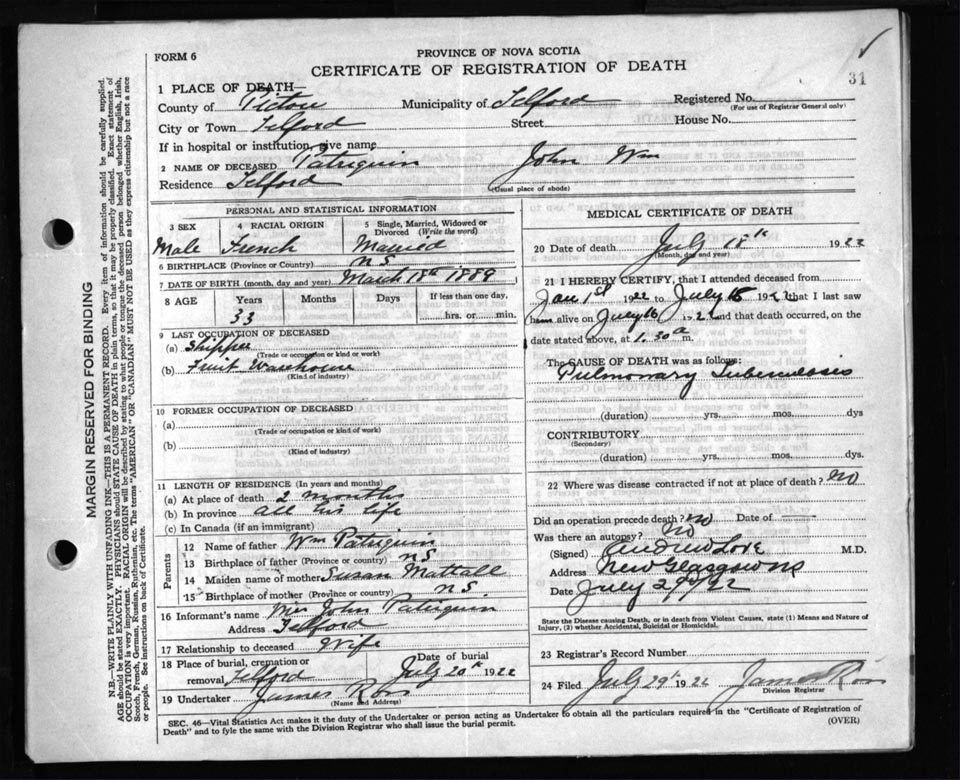 31
FORM 6
PROVINCE OF NOVA SCOTIA
CERTIFICATE OF REGISTRATION OF DEATH
1 PLACE OF DEATH
County of Pictou Municipality of Telford Registered No.
(For use of Registrar General only)
City or Town Telford Street House No.
If in hospital or institution, give name
2 NAME OF DECEASED Patriquin John Wm
Residence Telford
(Usual place of abode)
PERSONAL AND STATISTICAL INFORMATION
3 SEX 4 RACIAL ORIGIN 5 Single, Married, Widowed or Divorced (Write the word)
Male French Married
6 BIRTHPLACE (Province or Country) N S
7 DATE OF BIRTH (month, day and year) March 18th 1889
8 AGE Years Months Days If less than one day,
33 hrs. or min.
9 LAST OCCUPATION OF DECEASED
(a) Shipper
(Trade or occupation or kind of work)
(b) Fruit Warehouse
(Kind of industry)
10 FORMER OCCUPATION OF DECEASED
(a)
(Trade or occupation or kind of work)
(b)
(Kind of industry)
11 LENGTH OF RESIDENCE (In Years and Months)
(a) At place of death 2 months
(b) In province all his life
(c) In Canada (if an immigrant)
Parents
12 Name of father Wm Patriquin
13 Birthplace of father (Province or country) N S
14 Maiden name of mother Susan Mattall
15 Birthplace of mother (Province or country) N S
16 Informant's name Mrs John Patriquin
Address Telford
17 Relationship to deceased Wife
18 Place of burial, cremation or removal Telford Date of burial July 20th 1922
19 Undertaker James Ross
(Name and Address)
MEDICAL CERTIFICATE OF DEATH
20 Date of death July 18th 1922
(Month, day and year)
21 I HEREBY CERTIFY, that I attended deceased from
Jan 1st 1922 to July 16 1922 that I last saw
him alive on July 16 1922 and that death occurred, on
date stated above, at 1.30 a m.
The CAUSE OF DEATH was as follows:
Pulmonary Tuberculosis
(duration) yrs. mos. dys
CONTRIBUTORY
(Secondary)
(duration) yrs. mos. dys.
22 Where was disease contracted if not at place of death? No
Did an operation precede death? No Date of
Was there an autopsy? No
(Signed) Andrew Love M.D.
Address New Glasgow NS
Date July 29
State the Disease causing Death, or in death from Violent Causes, state (1) Means and Nature of Injury, (2) whether Accidental, Suicidal or Homicidal.
23 Registrar's Record Number
24 Filed July 29th 1922 James Ross
Division Registrar
SEC. 46—Vital Statistics Act makes it the duty of the Undertaker or person acting as Undertaker to obtain all the particulars required in the "Certificate of Registration of
Death" and to fyle the same with the Division Registrar who shall issue the burial permit.
(OVER)
MARGIN RESERVED FOR BINDING
N.B.—WRITE PLAINLY WITH UNFADING INK—THIS IS A PERMANENT RECORD. Every item of information should be carefully supplied.
AGE should be stated EXACTLY. PHYSICIANS should STATE CAUSE OF DEATH in plain terms, so that it may be properly classified. Exact statement of
OCCUPATION is very important. RACIAL ORIGIN will be described by stating to what people or tongue the deceased person belonged whether English, Irish,
Scotch, French, German, Russian, Ruthenian, etc. The terms "AMERICAN" OR "CANADIAN" MUST NOT BE USED as they express citizenship but not a race
or people. See instructions on back of Certificate.